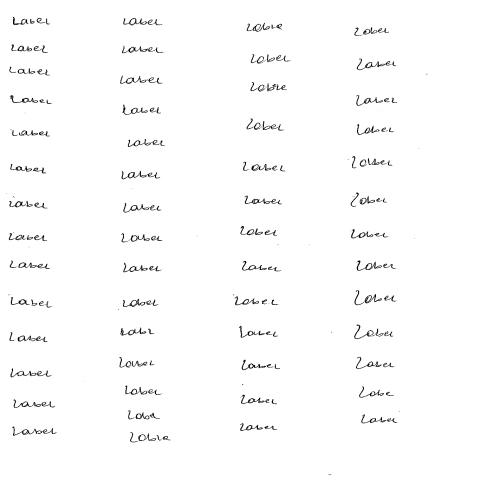 Label Label Lobie Lobel
Label Label Lobel Label
Label Label Lobie Label
Label Label Lobel Label
Label Label Label Lobel
Label Label Label Lobel
Label Label Lobel Lobel
Label Label Label Lobel
Label Label Lobel Lobel
Label Lobel Label Lobel
Label Labl Label Label
Label Label Label Lobe
Label Lobel Label Label
Label